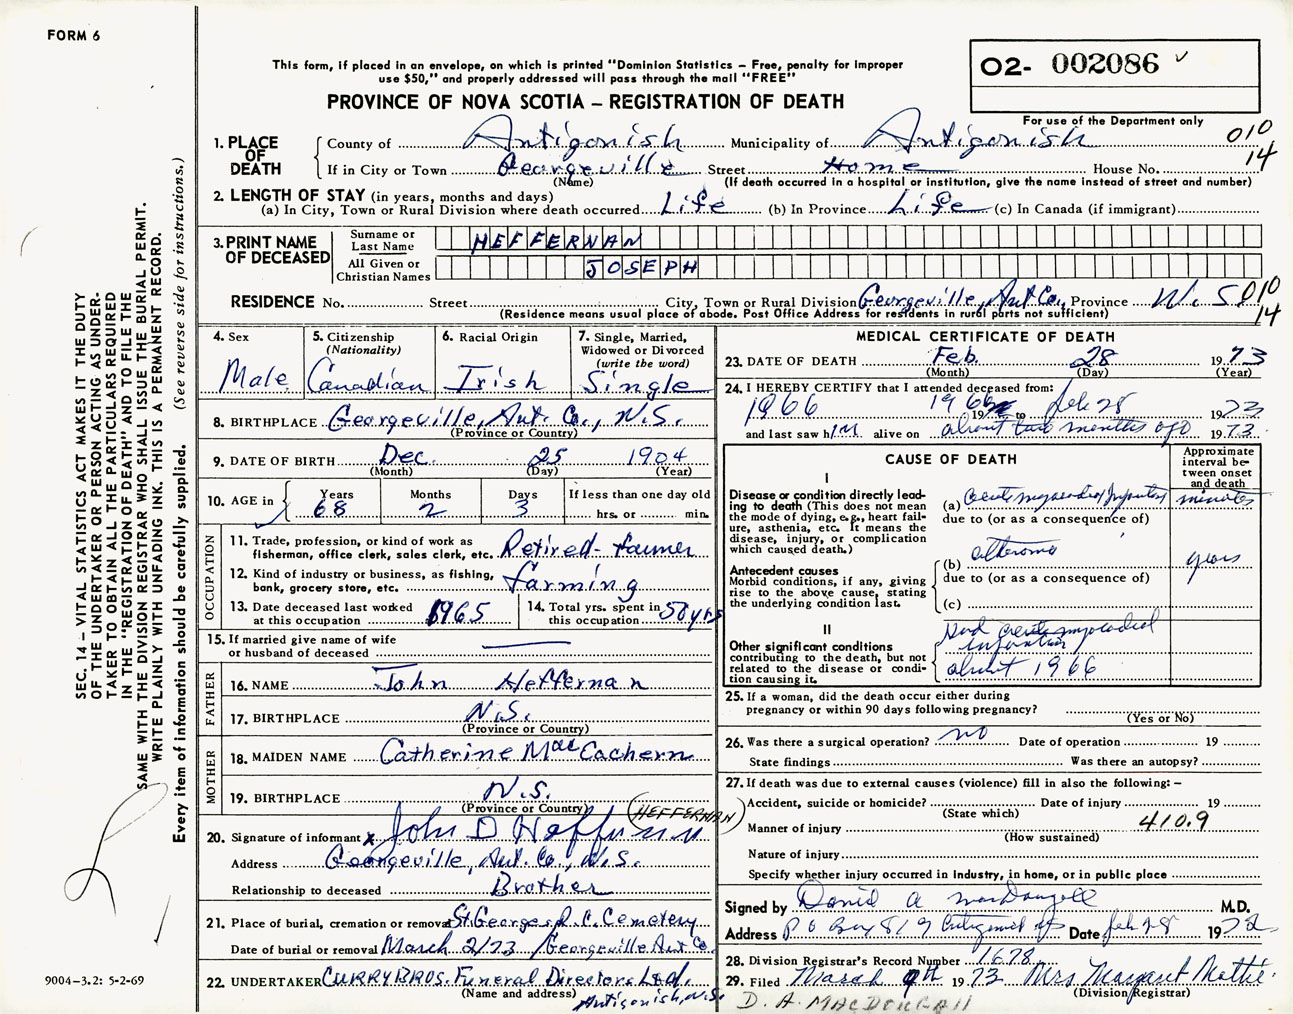 FORM 6
This form, if placed in an envelope, on which is printed "Dominion Statistics – Free, penalty for improper
use $50," and properly addressed will pass through the mail "FREE"
PROVINCE OF NOVA SCOTIA – REGISTRATION OF DEATH
O2- 002086
For use of the Department only
010
14
1. PLACE OF DEATH
County of Antigonish Municipality of Antigonish
If in City or Town Georgeville Street Home House No.
(Name) (If death occurred in a hospital or institution, give the name instead of street and number)
2. LENGTH OF STAY (in years, months and days)
(a) In City, Town or Rural Division where death occurred Life (b) In Province Life (c) In Canada (if immigrant)
3. PRINT NAME OF DECEASED
Surname or Last Name HEFFERNAN
All Given or Christian Names JOSEPH
RESIDENCE No. Street City, Town or Rural Division Georgeville, Ant Co., Province N.S. 010
(Residence means usual place of abode. Post Office Address for residents in rural parts not sufficient) 14
4. Sex
Male
5. Citizenship
(Nationality)
Canadian
6. Racial Origin
Irish
7. Single, Married,
Widowed or Divorced
(write the word)
Single
8. BIRTHPLACE Georgeville, Ant. Co., N.S.
(Province or Country)
9. DATE OF BIRTH Dec. 25 1904
(Month) (Day) (Year)
10. AGE in
Years Months Days If less than one day old
68 2 3 hrs. or min.
OCCUPATION
11. Trade, profession, or kind of work as
fisherman, office clerk, sales clerk, etc. Retired - farmer
12. Kind of industry or business, as fishing,
bank, grocery store, etc. farming
13. Date deceased last worked
at this occupation 1965
14. Total yrs. spent in
this occupation 50 yrs
15. If married give name of wife
or husband of deceased
FATHER
16. NAME John Heffernan
17. BIRTHPLACE N.S.
(Province or Country)
MOTHER
18. MAIDEN NAME Catherine MacEachern
19. BIRTHPLACE N.S.
(Province or Country)
(HEFFERNAN)
20. Signature of informant x John D Heffernan
Address Georgeville, Ant. Co., N.S.
Relationship to deceased Brother
21. Place of burial, cremation or removal St. Georges R.C. Cemetery
Date of burial or removal March 2/73 /Georgeville Ant Co.
22. UNDERTAKER CURRY BROS. Funeral Directors Ltd.
(Name and address) Antigonish, N.S.
MEDICAL CERTIFICATE OF DEATH
23. DATE OF DEATH Feb. 28 1973
(Month) (Day) (Year)
24. I HEREBY CERTIFY that I attended deceased from:
1966 1966 19 to Feb 28 1973
and last saw him alive on about two months ago 1973.
CAUSE OF DEATH
Approximate
interval be-
tween onset
and death
I
Disease or condition directly lead-
ing to death (This does not mean
the mode of dying, e.g., heart fail-
ure, asthenia, etc. It means the
disease, injury, or complication
which caused death.)
(a) acute myocardial infarction minutes
due to (or as a consequence of)
(b) atheroma years
Antecedent causes
Morbid conditions, if any, giving
rise to the above cause, stating
the underlying condition last.
due to (or as a consequence of)
(c)
II
Other significant conditions
contributing to the death, but not
related to the disease or condi-
tion causing it.
Had acute myocardial
infarction
about 1966
25. If a woman, did the death occur either during
pregnancy or within 90 days following pregnancy?
(Yes or No)
26. Was there a surgical operation? no Date of operation 19
State findings Was there an autopsy?
27. If death was due to external causes (violence) fill in also the following: –
Accident, suicide or homicide? Date of injury 19
(State which)
Manner of injury 410.9
(How sustained)
Nature of injury
Specify whether injury occurred in industry, in home, or in public place
Signed by David A MacDougall M.D.
Address P O Box 819 Antigonish NS Date Feb 28 1973
28. Division Registrar's Record Number 1678
29. Filed March 9th 1973 Mrs Margaret Mattie
(Division Registrar)
D. A. MACDOUGALL
SEC. 14 – VITAL STATISTICS ACT MAKES IT THE DUTY
OF THE UNDERTAKER OR PERSON ACTING AS UNDER-
TAKER TO OBTAIN ALL THE PARTICULARS REQUIRED
IN THE "REGISTRATION OF DEATH" AND TO FILE THE
SAME WITH THE DIVISION REGISTRAR WHO SHALL ISSUE THE BURIAL PERMIT.
WRITE PLAINLY WITH UNFADING INK. THIS IS A PERMANENT RECORD.
Every item of information should be carefully supplied. (See reverse side for instructions.)
9004–3.2: 5-2-69